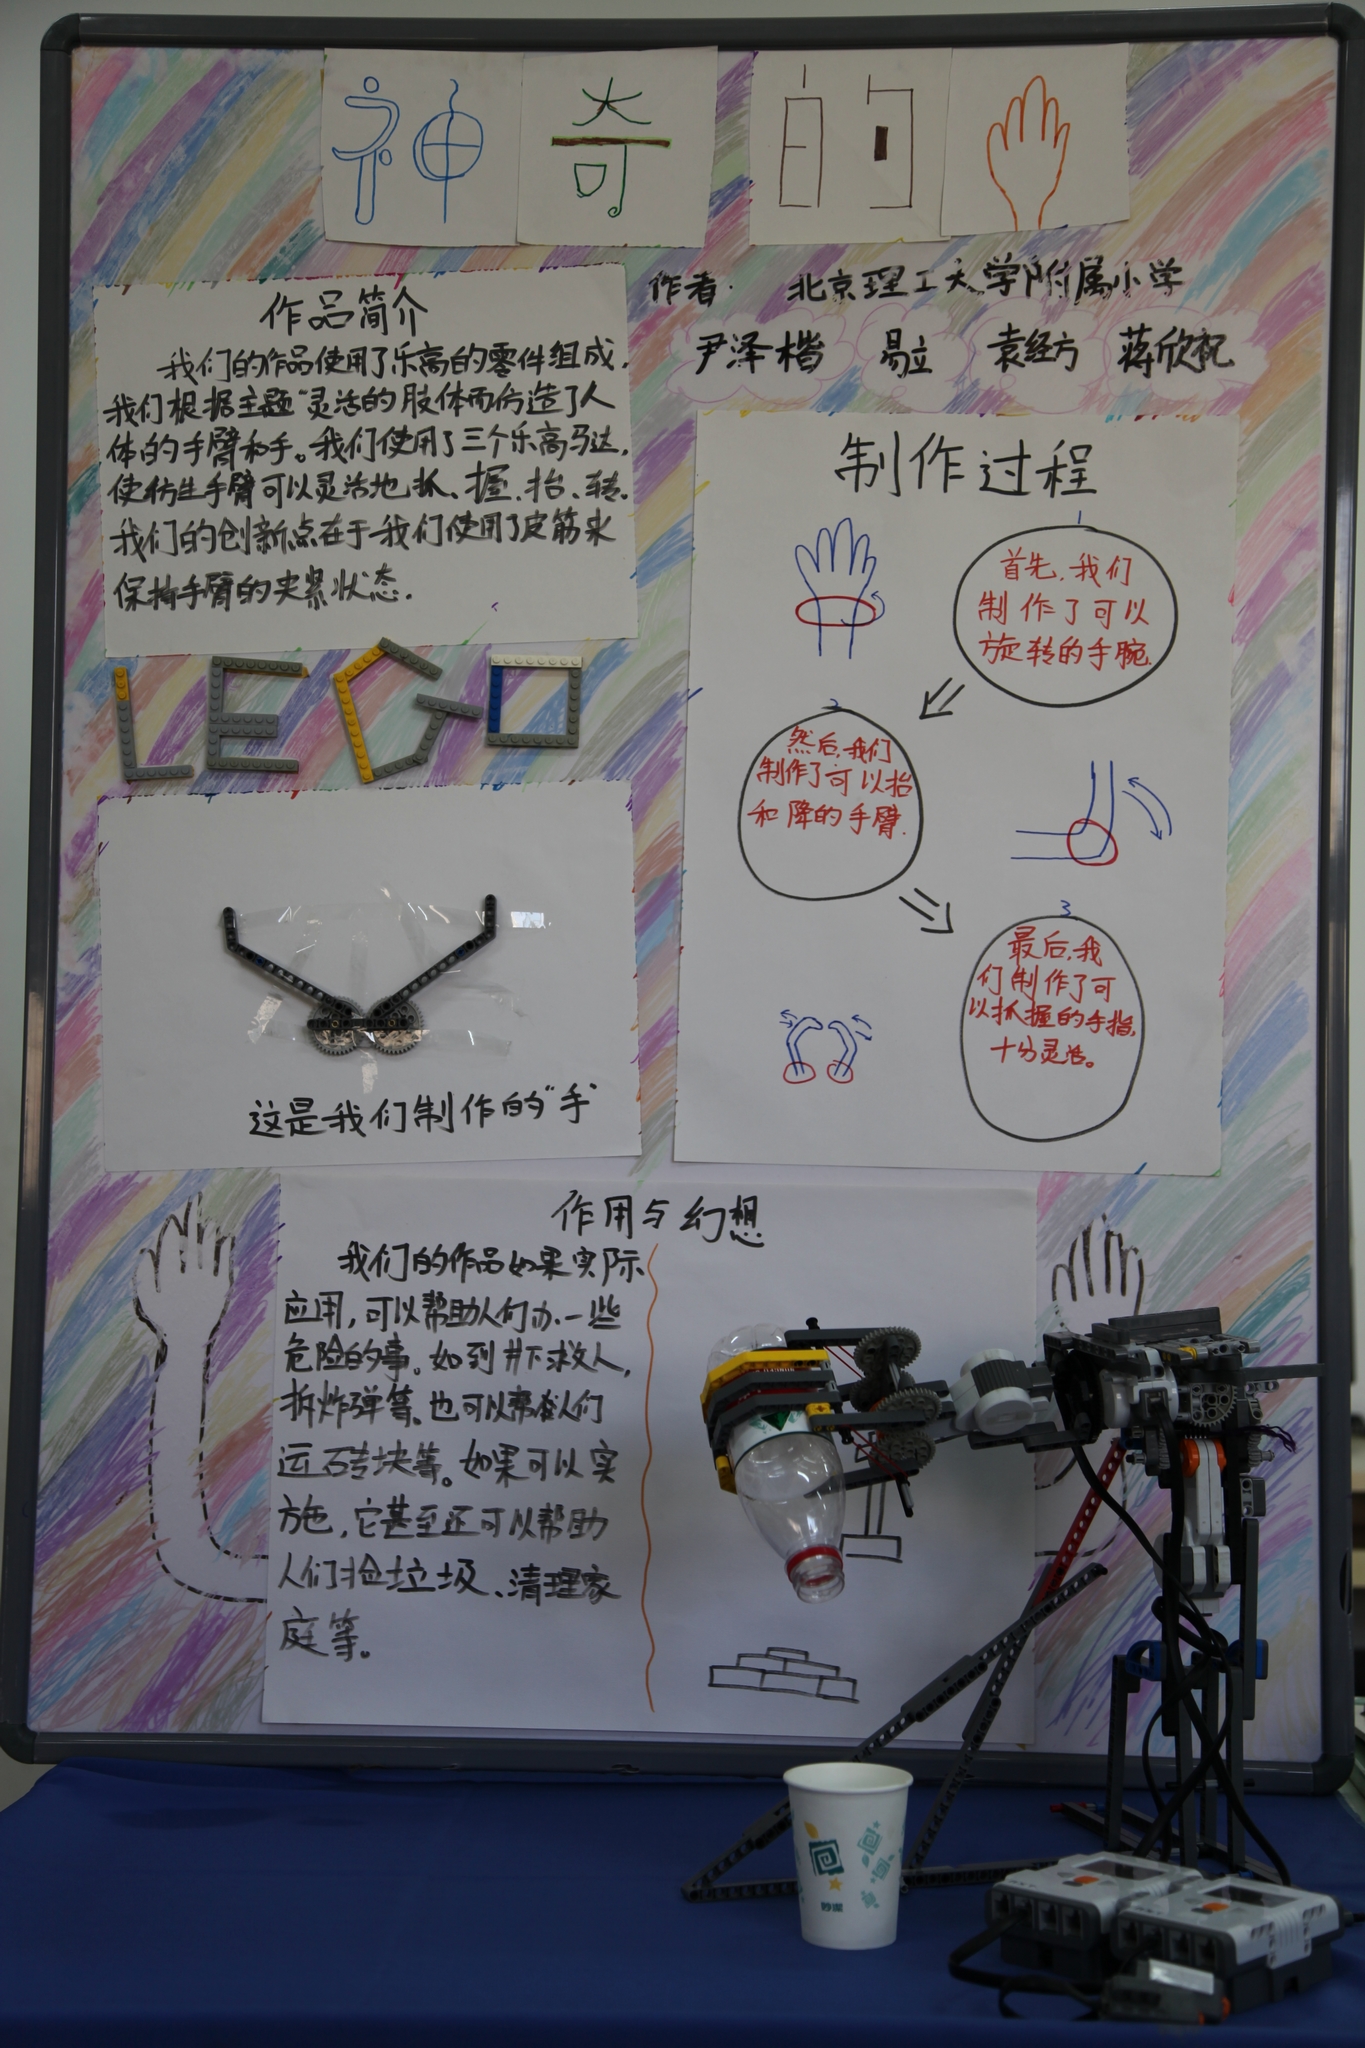 神奇的
作者: 北京理工大学附属小学
尹泽楷 易立 袁经方 蒋欣祝
作品简介
我们的作品使用了乐高的零件组成,
我们根据主题“灵活的肢体而仿造了人
体的手臂和手。我们使用了三个乐高马达,
使仿生手臂可以灵活地抓、握、抬、转.
我们的创新点在于我们使用了皮筋来
保持手臂的夹紧状态.
LEGO
这是我们制作的“手”
制作过程
1
首先,我们
制作了可以
旋转的手腕.
2
然后,我们
制作了可以抬
和降的手臂.
3
最后,我
们制作了可
以抓握的手指,
十分灵活。
作用与幻想
我们的作品如果实际
应用,可以帮助人们办一些
危险的事。如到井下救人,
拆炸弹等、也可以帮人们
运砖块等。如果可以实
施,它甚至还可以帮助
人们捡垃圾、清理家
庭等。
妙潔